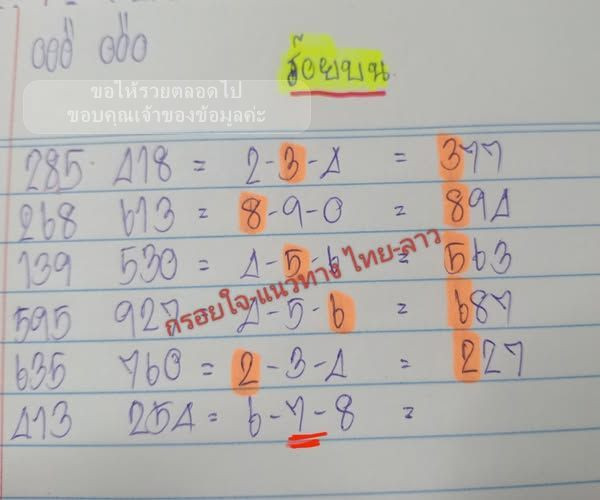 ร้อยบน
ขอให้รวยตลอดไป
ขอบคุณเจ้าของข้อมูลค่ะ
285 418 = 2-3-4 = 377
268 613 = 8-9-0 = 894
139 530 = 4-5-6 = 563
595 927 4-5-6 = 687
635 760 = 2-3-4 = 227
413 254 = 6-7-8 =
ครอยใจ แนวทาง ไทย-ลาว